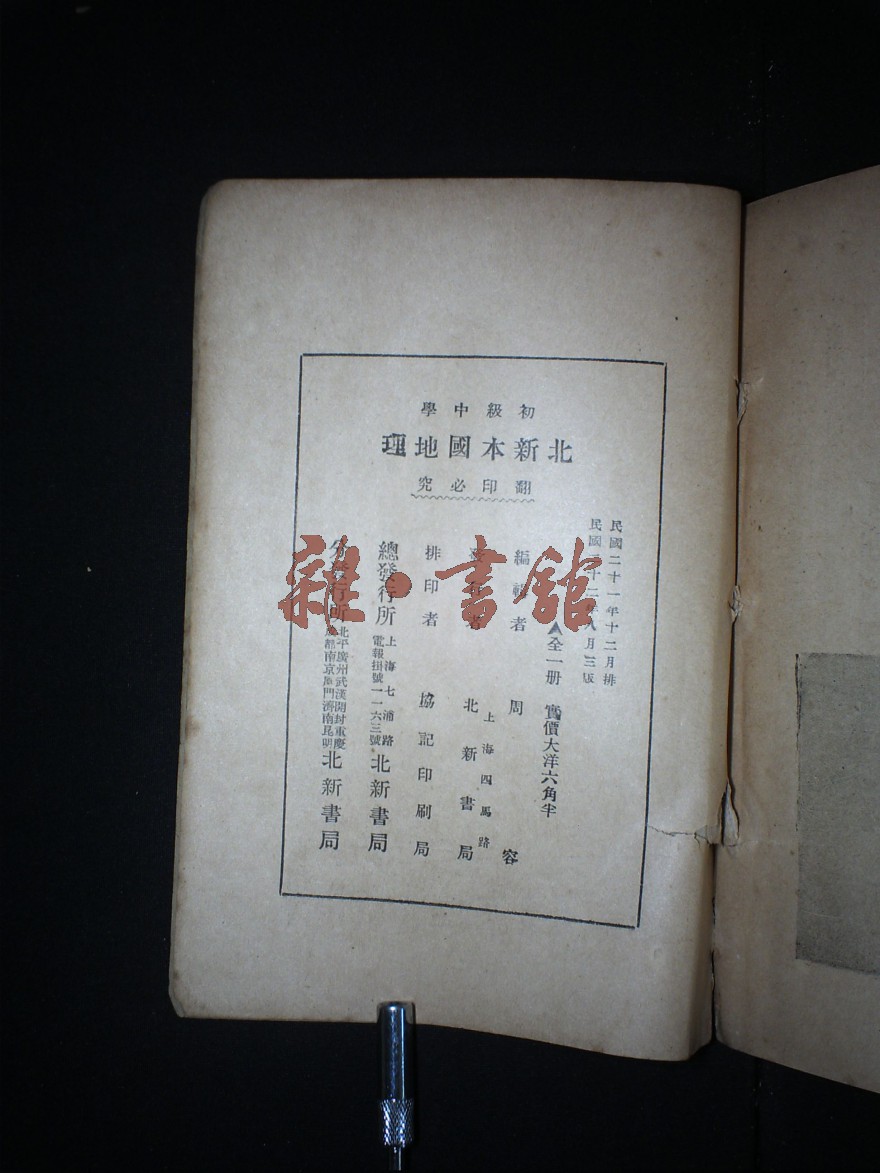 初級中學
北新本國地理
翻印必究
民國二十一年十二月排
民國二十二年八月三版
▲全一册 實價大洋六角半
編輯者 周容
發行者 上海四馬路 北新書局
排印者 協記印刷局
總發行所 上海七浦路 電報掛號一一六三號 北新書局
分發行所 北平廣州武漢開封重慶 成都南京厦門濟南昆明 北新書局
雜·書館